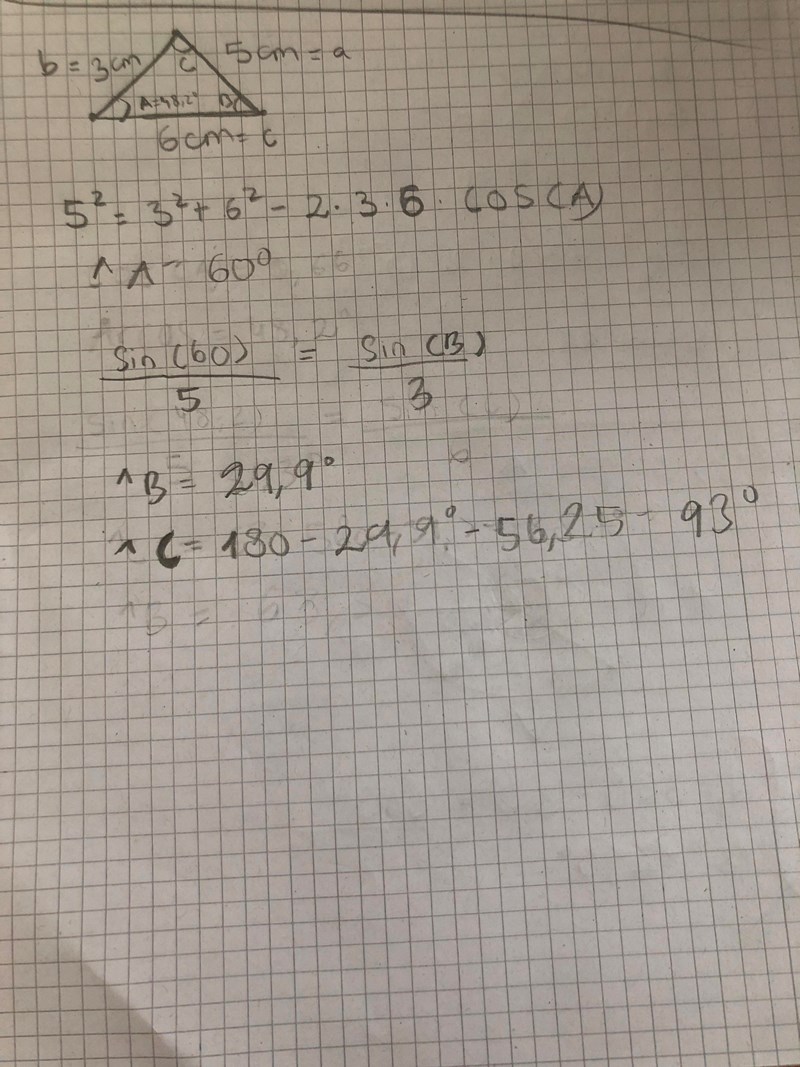 b = 3cm
5cm = a
C
A=48,2°
B
6cm = c
5² = 3² + 6² - 2 · 3 · 6 · cos(A)
^ A = 60°
sin(60)/5 = sin(B)/3
^ B = 29,9°
^ C = 180 - 29,9° - 56,25 = 93°